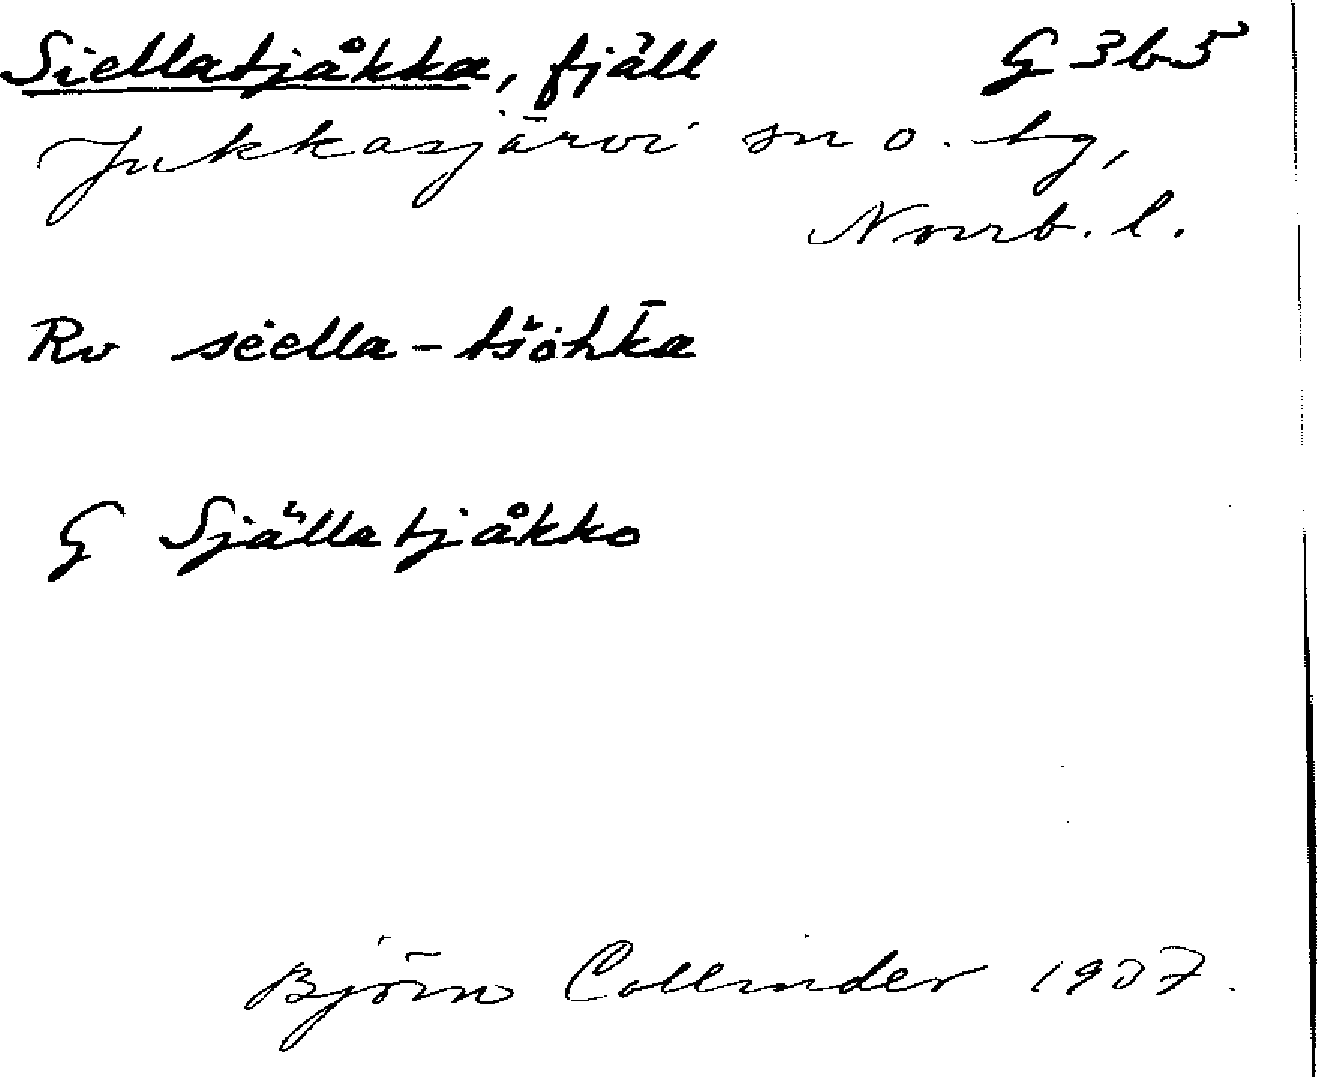 Siellatjåkka, fjäll G 3b5
Jukkasjärvi sn o. tg,
Norrb. l.
Rv siella-tšohka
G Själlatjåkko
Björn Collinder 1937.